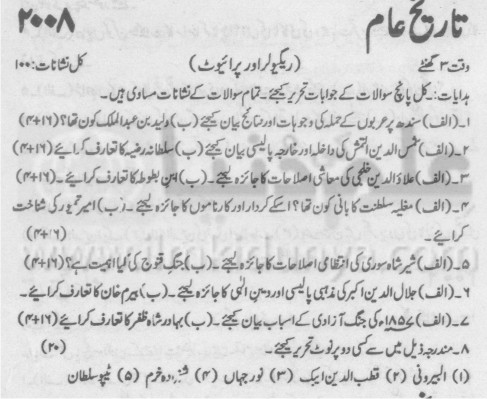 تاریخ عام ۲۰۰۸
وقت ۳ گھنٹے (ریگولر اور پرائیوٹ) کل نشانات: ۱۰۰
ہدایات: ۔کل پانچ سوالات کے جوابات تحریر کیجئے۔ تمام سوالات کے نشانات مساوی ہیں۔
۱۔ (الف) سندھ پر عربوں کے حملہ کی وجوہات اور نتائج بیان کیجئے (ب) ولید بن عبدالملک کون تھا؟ (۱۶+۴)
۲۔ (الف) شمس الدین التمش کی داخلہ اور خارجہ پالیسی بیان کیجئے (ب) سلطانہ رضیہ کا تعارف کرائیے (۱۶+۴)
۳۔ (الف) علاؤالدین خلجی کی معاشی اصلاحات کا جائزہ لیجئے۔ (ب) ابن بطوطہ کا تعارف کرائیے۔ (۱۶+۴)
۴۔ (الف) مغلیہ سلطنت کا بانی کون تھا؟ اسکے کردار اور کارناموں کا جائزہ لیجئے۔ (ب) امیر تیمور کی شناخت
کرائیے۔ (۱۶+۴)
۵۔ (الف) شیر شاہ سوری کی انتظامی اصلاحات کا جائزہ لیجئے۔ (ب) جنگ قنوج کی کیا اہمیت ہے؟ (۱۶+۴)
۶۔ (الف) جلال الدین اکبر کی مذہبی پالیسی اور دین الٰہی کا جائزہ لیجئے۔ (ب) بیرم خان کا تعارف کرائیے۔
۷۔ (الف) ۱۸۵۷ء کی جنگ آزادی کے اسباب بیان کیجئے (ب) بہادر شاہ ظفر کا تعارف کرائیے (۱۶+۴)
۸۔ مندرجہ ذیل میں سے کسی دو پر نوٹ تحریر کیجئے۔ (۲۰)
(۱) البیرونی (۲) قطب الدین ایبک (۳) نور جہاں (۴) شہزادہ خرم (۵) ٹیپو سلطان